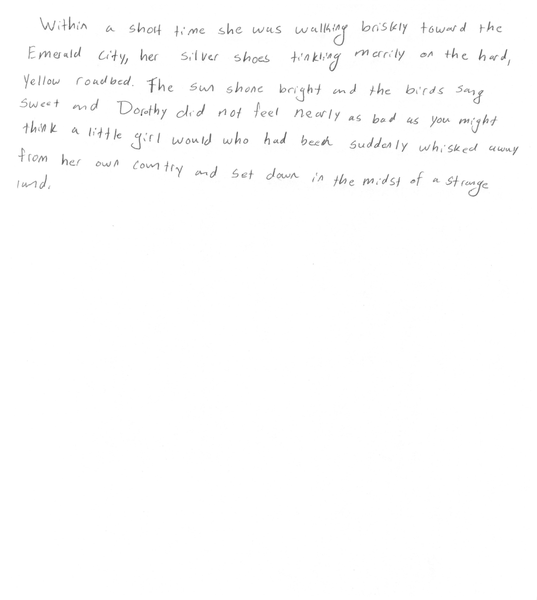 Within a short time she was walking briskly toward the
Emerald City, her silver shoes tinkling merrily on the hard,
yellow roadbed. The sun shone bright and the birds sang
sweet and Dorothy did not feel nearly as bad as you might
think a little girl would who had been suddenly whisked away
from her own country and set down in the midst of a strange
land.